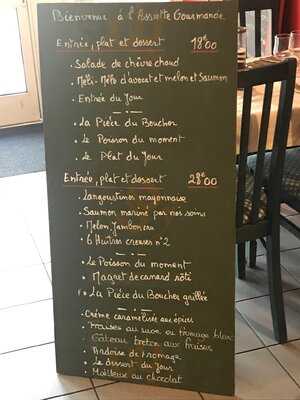 Bienvenue à l'Assiette Gourmande
Entrée, plat et dessert 18€00
. Salade de chèvre chaud
. Méli-Mélo d'avocat et melon et Saumon
. Entrée du Jour
. La Pièce du Boucher
. Le Poisson du moment
. Le Plat du Jour
Entrée, plat et dessert 28€00
. Langoustines mayonnaise
. Saumon mariné par nos soins
. Melon Jambon cru
. 6 Huîtres creuses n°2
. Le Poisson du moment
. Magret de canard rôti
. La Pièce du Boucher grillée
. Crème caramélisée aux épices
. Fraises au sucre ou fromage blanc
. Gateau breton aux fraises
. Ardoise de fromage
. Le dessert du Jour
. Moelleux au chocolat